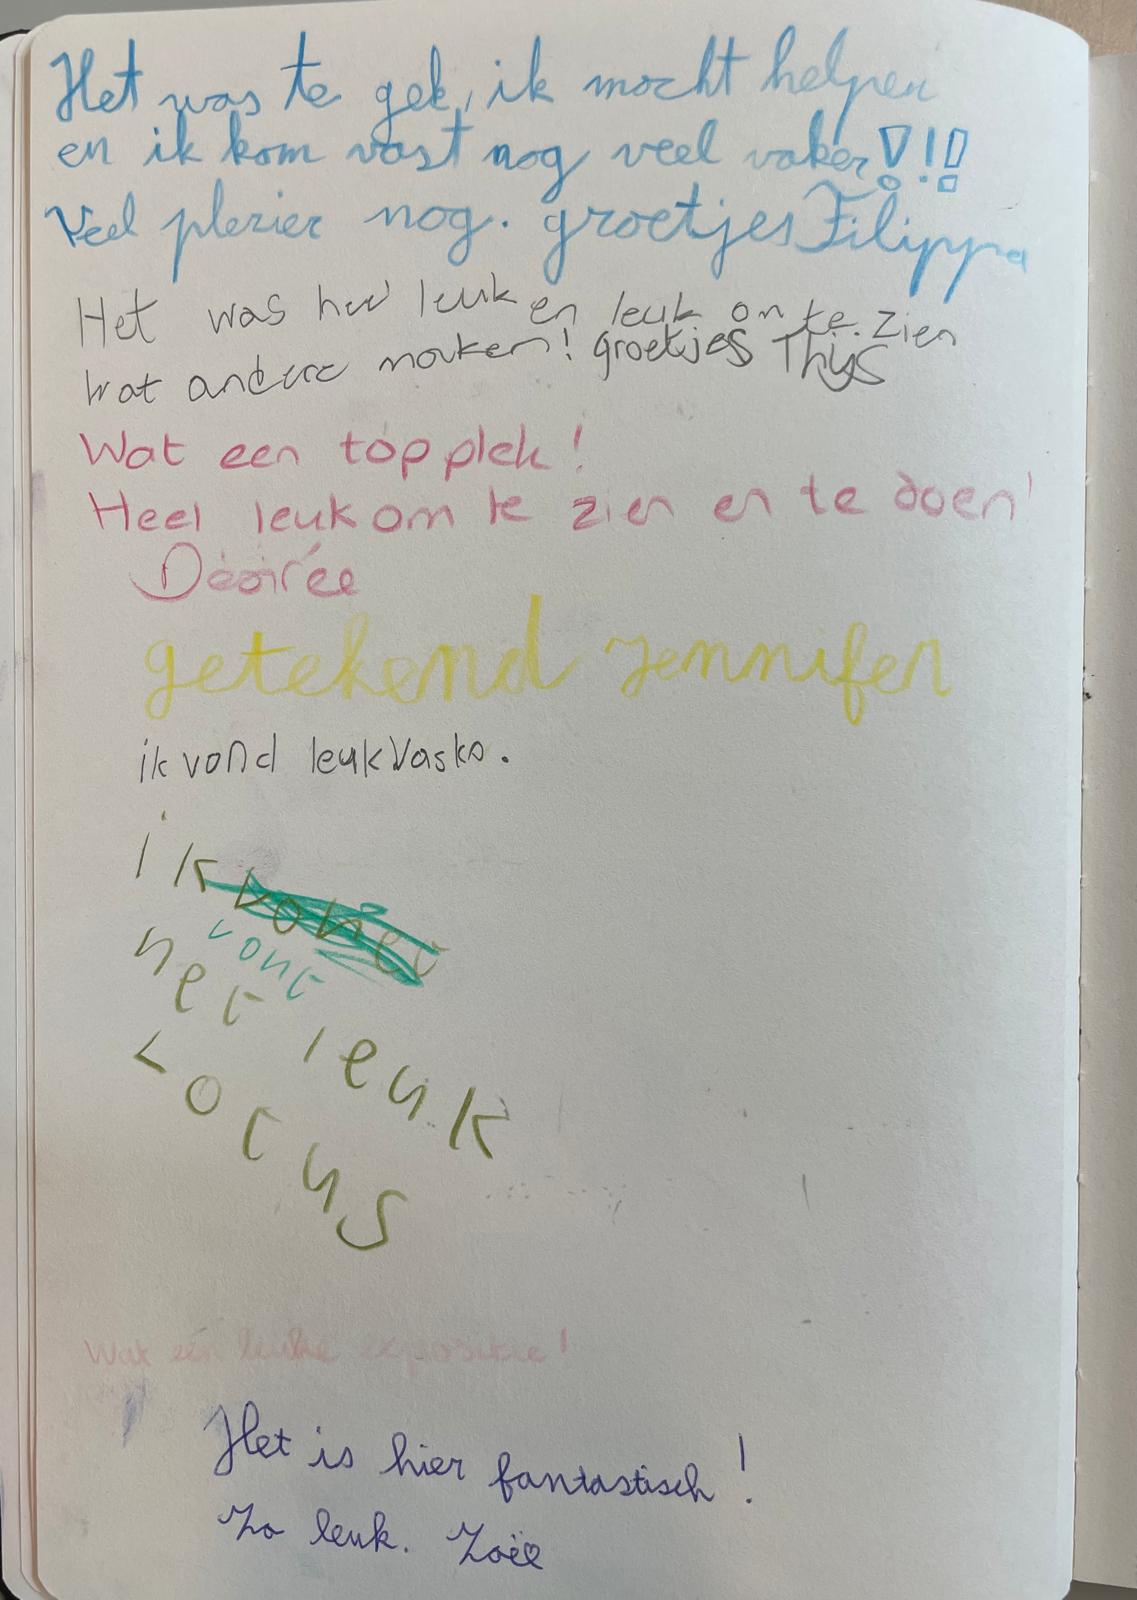 Het was te gek, ik mocht helpen
en ik kom vast nog veel vaker!!!
Veel plezier nog. groetjes Filippa
Het was heel leuk en leuk om te zien
wat andere maken! groetjes Thijs
Wat een top plek!
Heel leuk om te zien en te doen!
Desirée
getekend Jennifer
ik vond leuk Vasko.
ik
vont
het leuk
Locus
Wat een leuke expositie!
Het is hier fantastisch!
Zo leuk. Zoëe